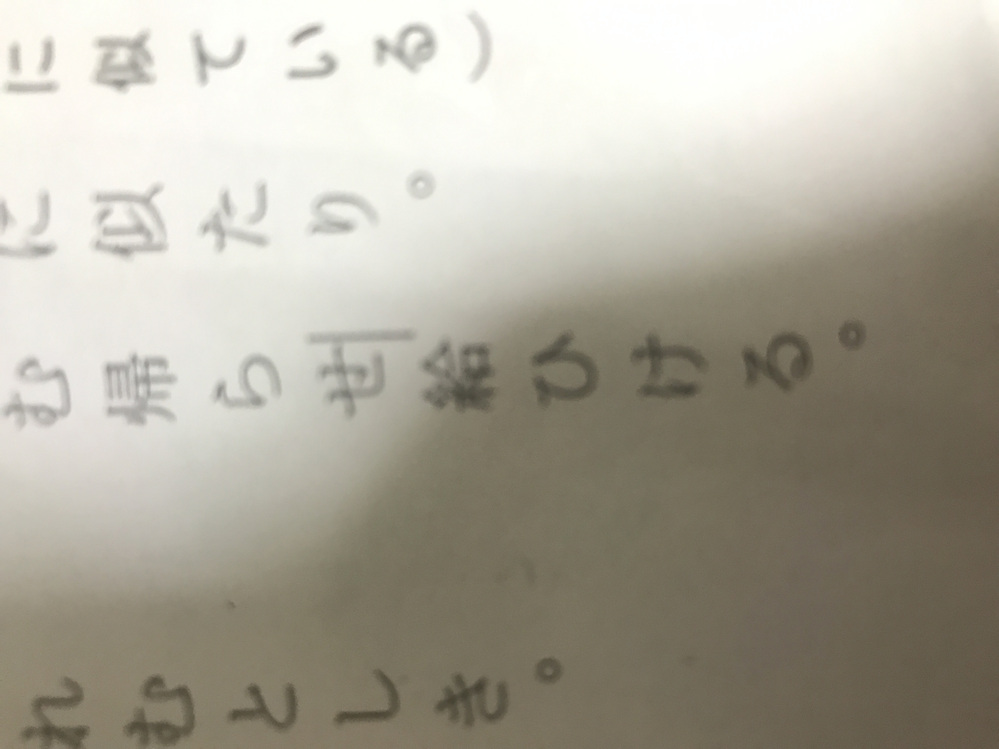 に似ている）
に似たり。
む帰らせ給ひける。
れむとしき。